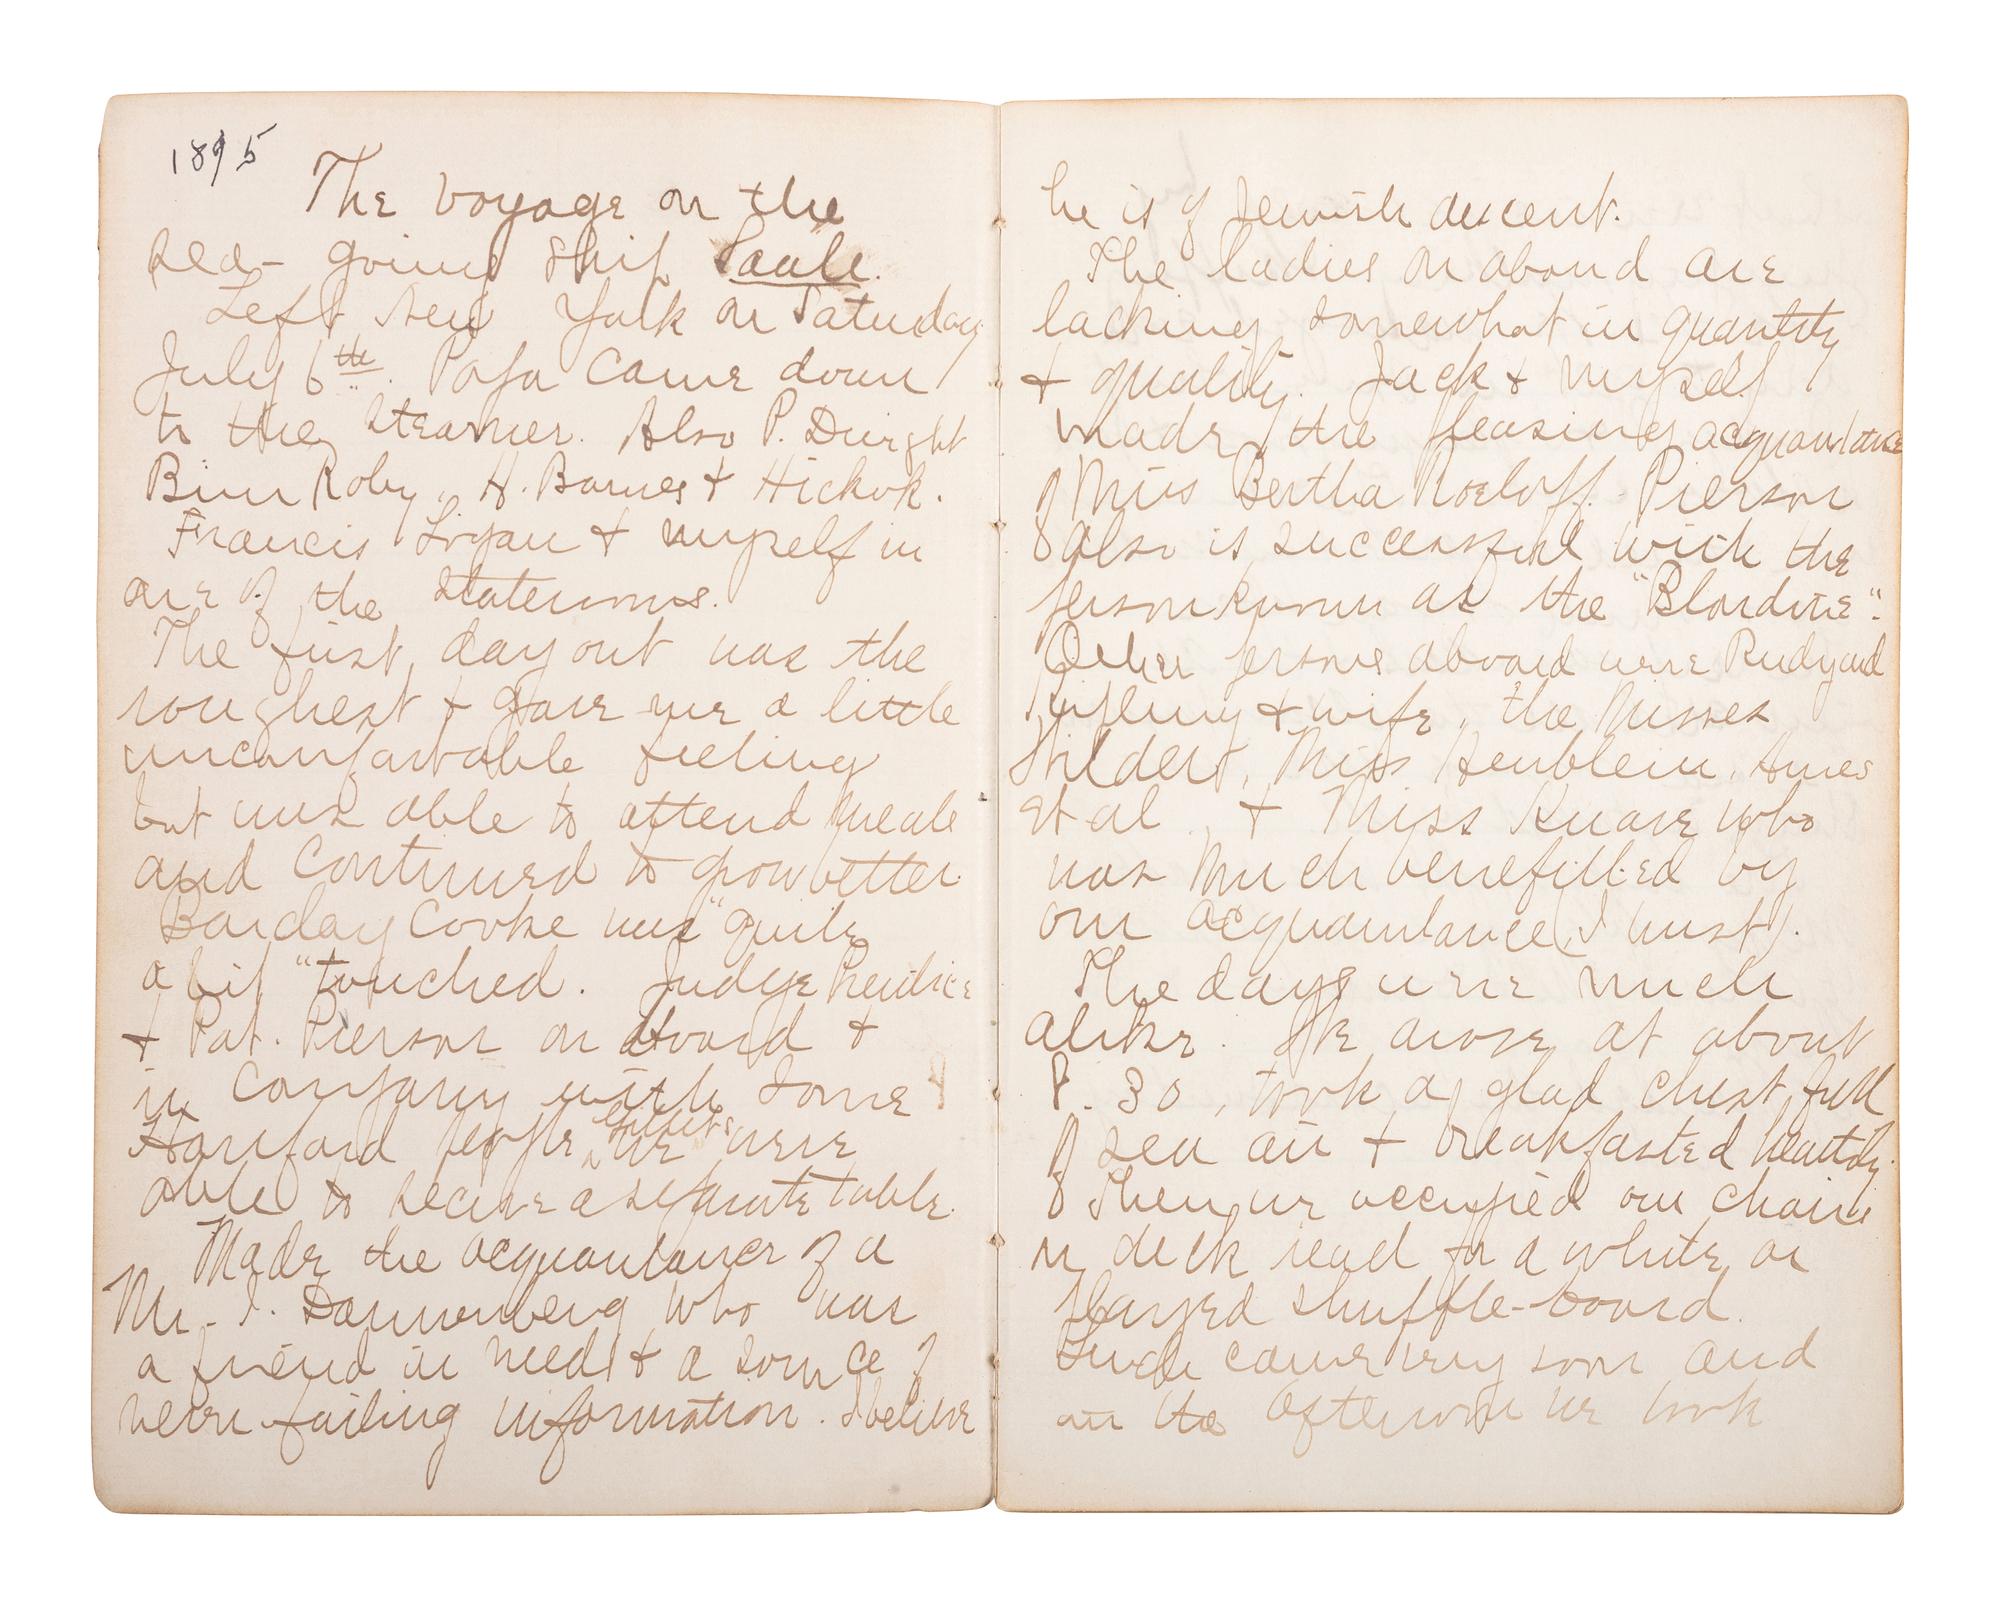 1895
The voyage on the
sea-going ship Saale.
Left New York on Saturday
July 6th. Papa came down
to the steamer. Also P. Dwight
Binn Roby, H. Barnes & Hickok.
Francis Logan & myself in
one of the staterooms.
The first day out was the
roughest & gave me a little
uncomfortable feeling
but was able to attend meals
and continued to grow better.
Barclay Cooke was "quite
a bit "touched. Judge Prentice
& Pat. Pierson on aboard &
in company with some
Hartford people, we were
able to secure a separate table.
Made the acquantance of a
Mr. I. Dannenberg who was
a friend in need & a source of
never-failing information. I believe
he is of Jewish descent.
The ladies on aboard are
lacking somewhat in quantity
& quality. Jack & myself
made the pleasing acquaintance
of Miss Bertha Roeloff. Pierson
also is successful with the
person known as the "Blondine".
Other persons aboard were Rudyard
Kipling & wife, the Misses
Hilders, Miss Heublein, Ames
et al, & Miss Knave who
was much benefitted by
our acquaintance (I trust).
The days were much
alike. We arose at about
8.30, took a glad chest full
of sea air & breakfasted heartily.
Then we occupied our chairs
on deck read for a while, or
played shuffle-board.
Lunch came very soon and
in the afternoon we took